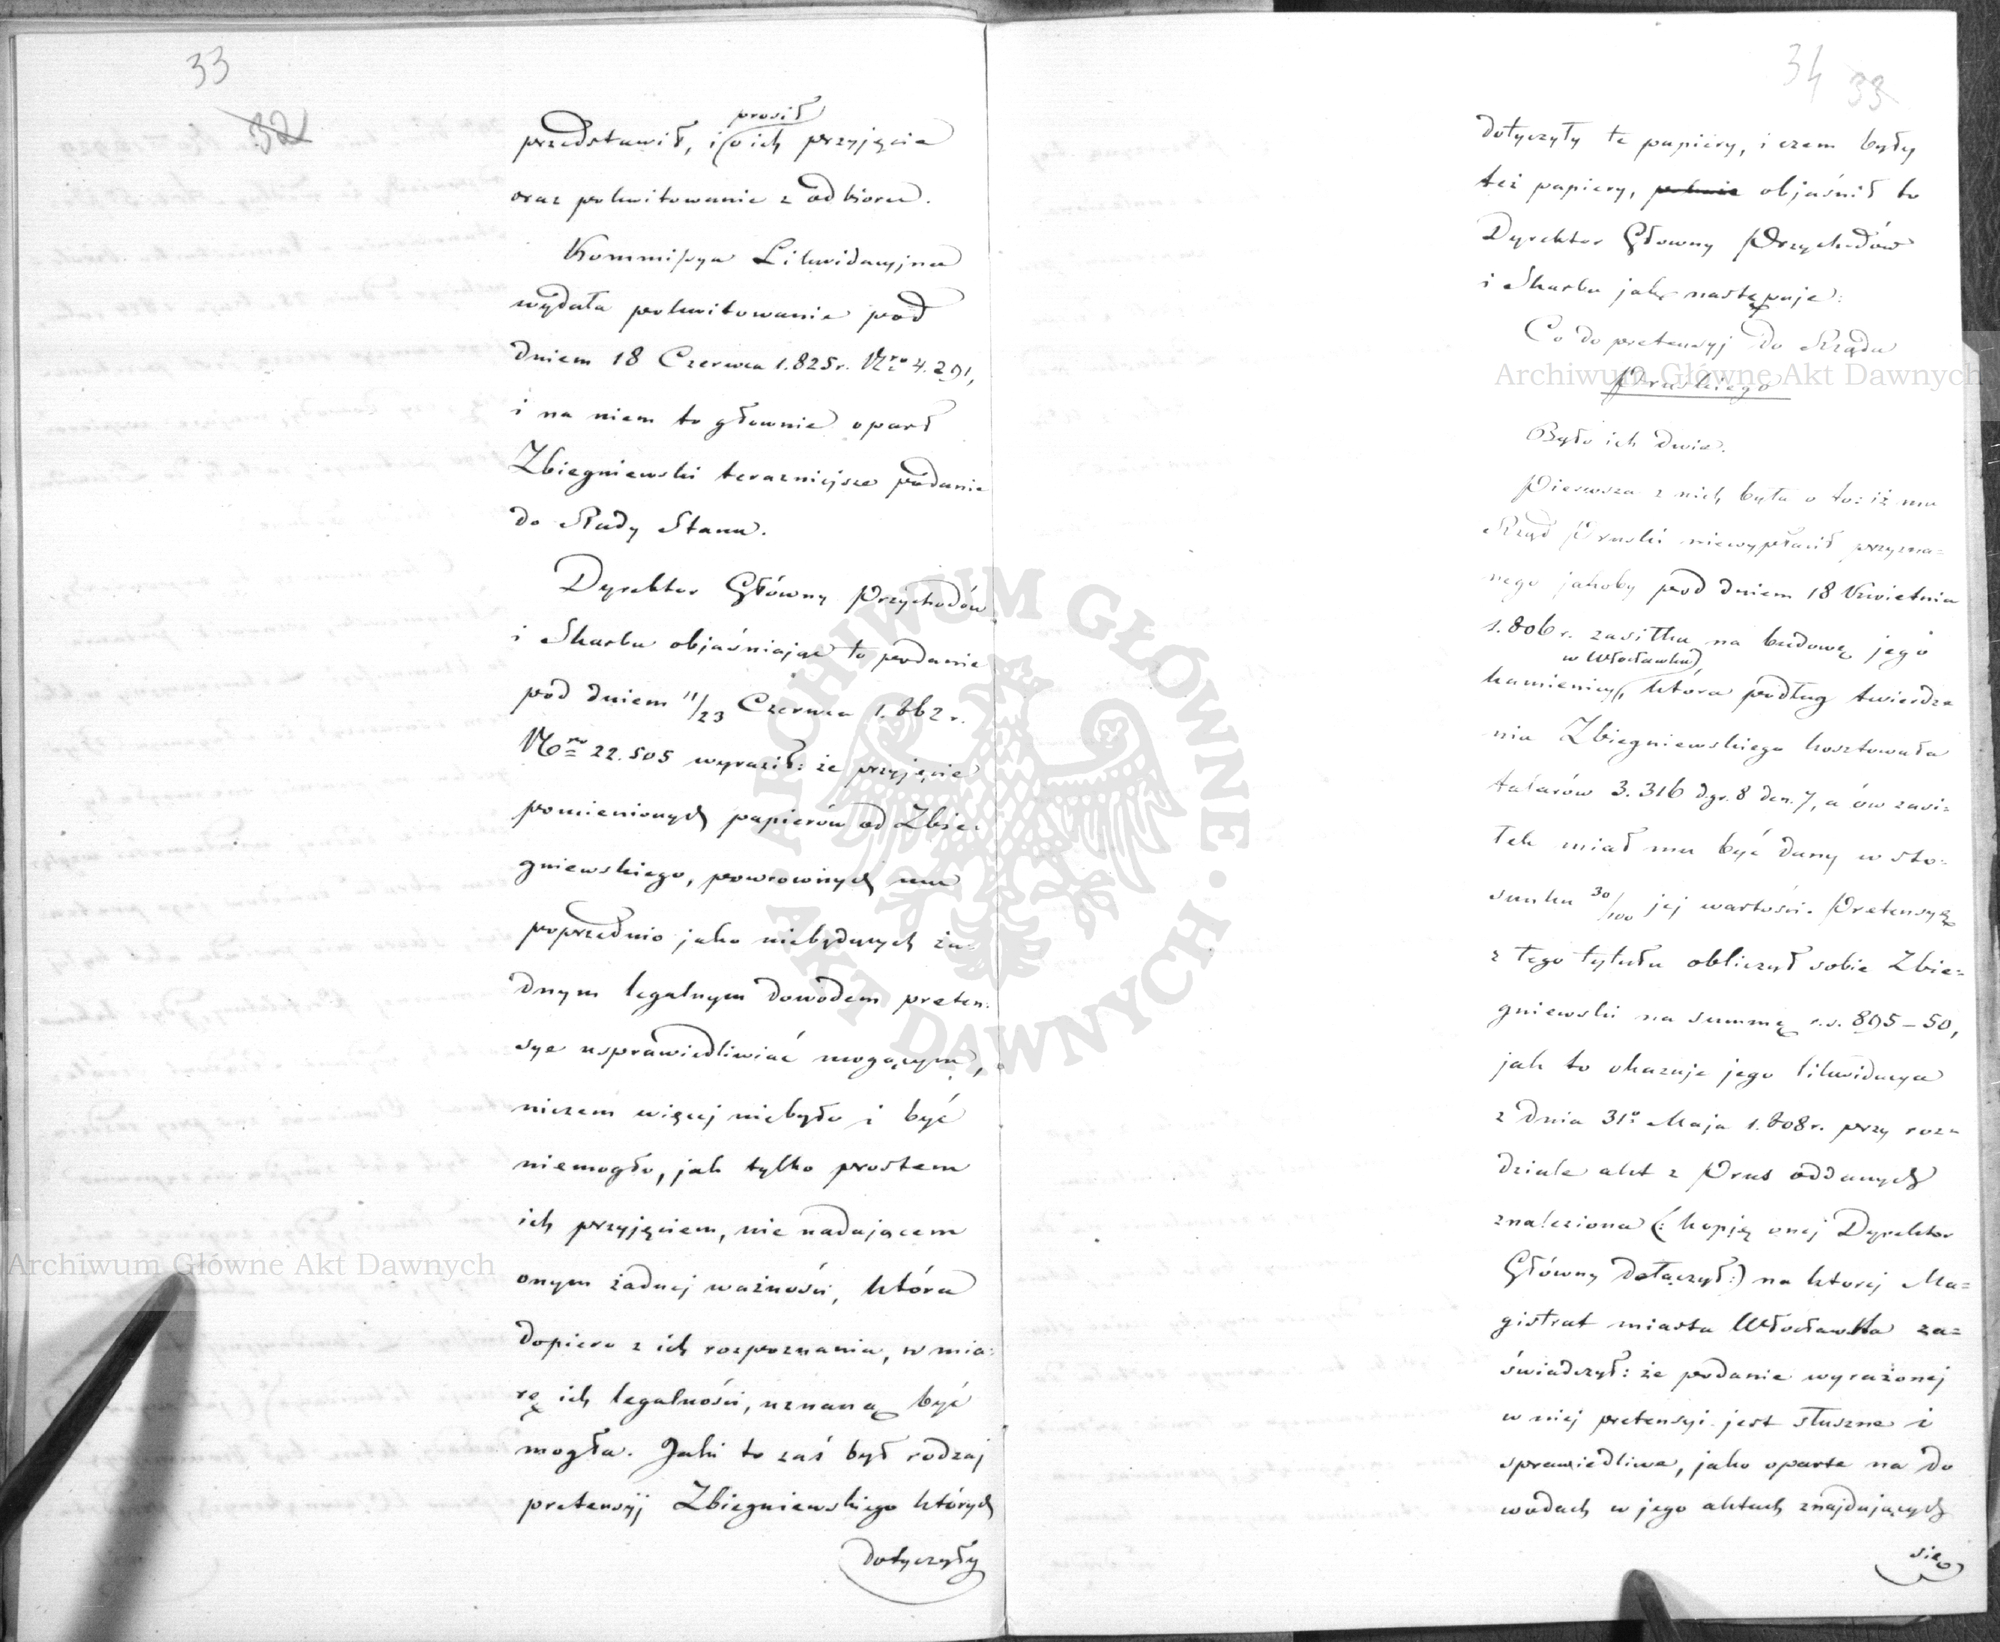 33
32
prosił
przedstawił, i o ich przyjęcie
oraz pokwitowanie z odbioru.
Kommissya Likwidacyjna
wydała pokwitowanie pod
dniem 18 Czerwca 1.825 r. Nro 4.291,
i na niem to głownie oparł
Zbiegniewski terazniejsze podanie
do Rady Stanu.
Dyrektor Główny Przychodów
i Skarbu objaśniając to podanie
pod dniem 11/23 Czerwca 1.862 r.
Nro 22.505 wyraził: że przyjęcie
pomienionych papierów od Zbie-
gniewskiego, powrownych mu
poprzednio jako niebędących ża-
dnym legalnym dowodem preten-
sye usprawiedliwiać mogącym,
niczem więcej niebyło i być
niemogło, jak tylko prostem
ich przyjęciem, nie nadającem
onym żadnej ważności, która
dopiero z ich rozpoznania, w mia-
rę ich legalności, uznaną być
mogła. Jaki to zaś był rodzaj
pretensyj Zbiegniewskiego których
dotyczyły
34 33
dotyczyły te papiery, i czem były
też papiery, objaśnił to
Dyrektor Głowny Przychodów
i Skarbu jak następuje:
Co do pretensyj do Rządu
Pruskiego
Było ich dwie.
Pierwsza z nich była o to: iż mu
Rząd Pruski niewypłacił przyzna-
nego jakoby pod dniem 18 Kwietnia
1.806 r. zasiłku na budowę jego
w Włocławku,
kamienicy, która podług twierdze
nia Zbiegniewskiego kosztowała
talarów 3.316 dgr. 8 den. 7, a ów zasi-
łek miał mu być dany w sto-
sunku 30/100 jej wartości. Pretensyę
z tego tytułu obliczył sobie Zbie-
gniewski na summę r.s. 895-50,
jak to okazuje jego likwidacya
z dnia 31o Maja 1.808 r. przy roz-
dziale akt z Prus oddanych
znaleziona (: kopję onej Dyrektor
Główny dołączył:) na ktorej Ma-
gistrat miasta Włocławka za-
świadczył: że podanie wyrażonej
w niej pretensyi jest słuszne i
sprawiedliwe, jako oparte na do
wodach w jego aktach znajdujących
się
Archiwum Główne Akt Dawnych
Archiwum Główne Akt Dawnych
ARCHIWUM GŁÓWNE AKT DAWNYCH